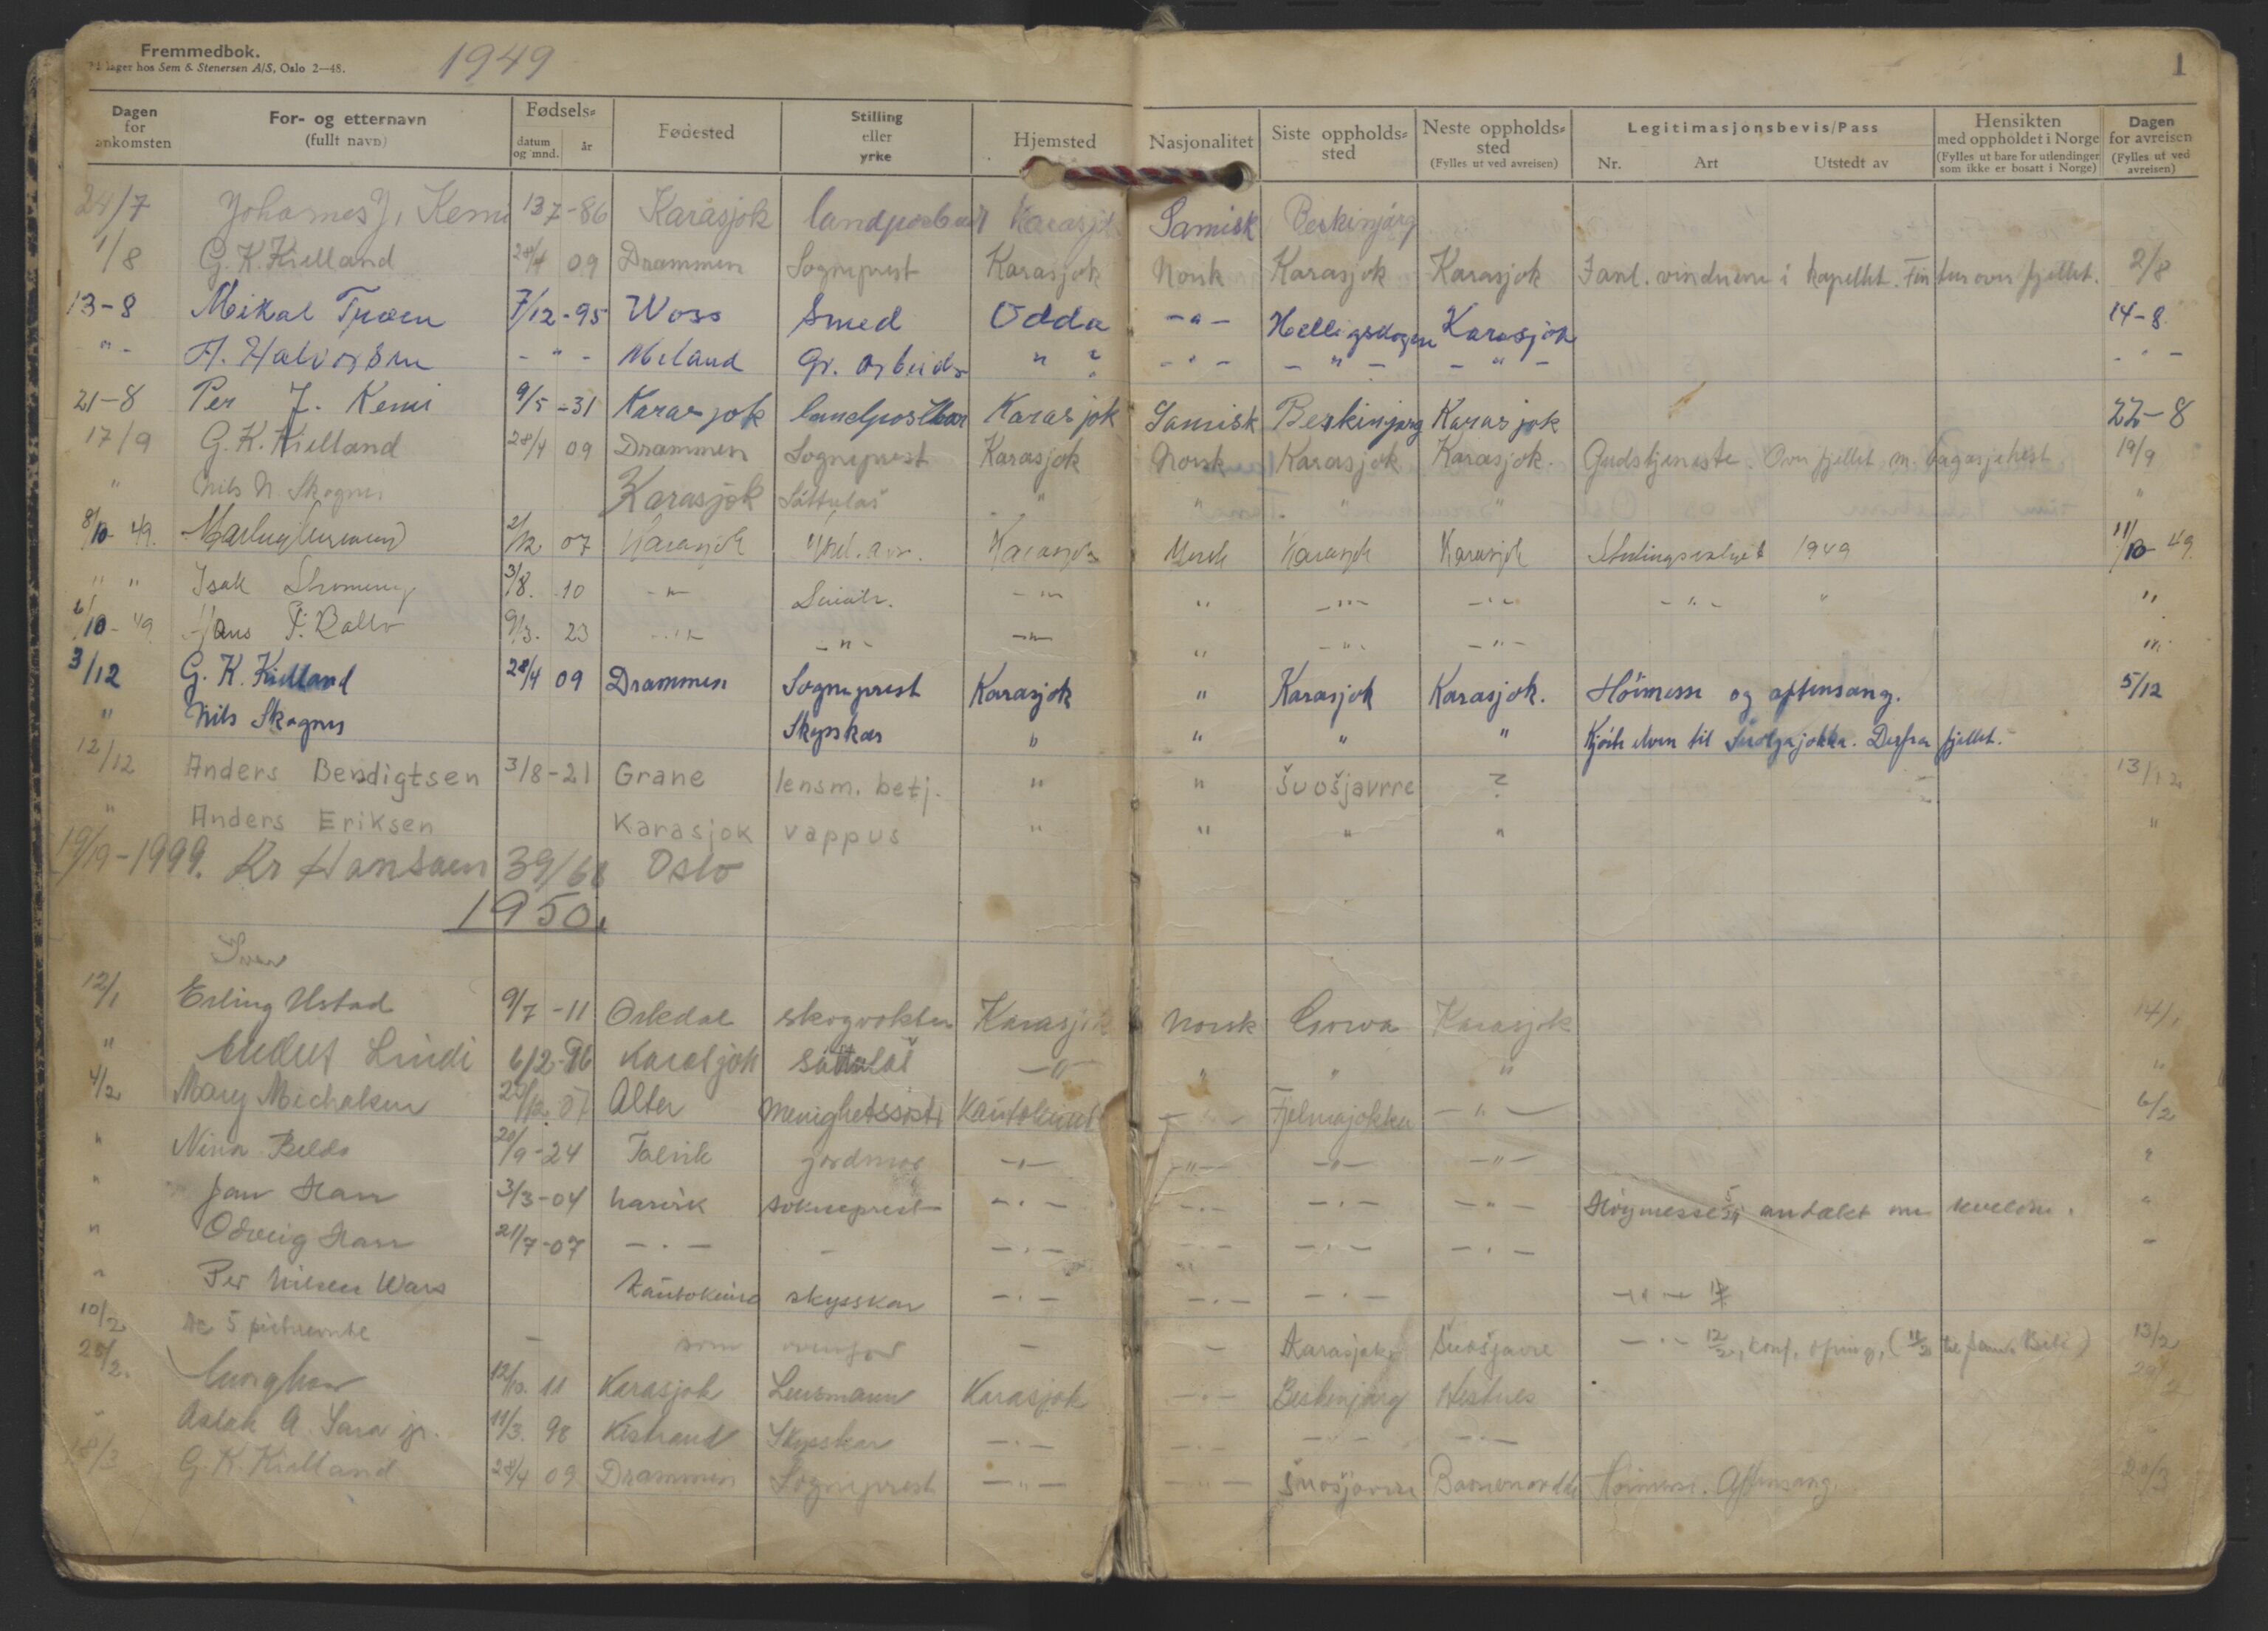 Fremmedbok.
På lager hos Sem & Stenersen A/S, Oslo 2—48.
1949
1
Dagen for ankomsten
For- og etternavn (fullt navn)
Fødsels- datum og mnd. år
Fødested
Stilling eller yrke
Hjemsted
Nasjonalitet
Siste oppholdssted
Neste oppholdssted (Fylles ut ved avreisen)
Legitimasjonsbevis/Pass Nr. Art Utstedt av
Hensikten med oppholdet i Norge (Fylles ut bare for utlendinger som ikke er bosatt i Norge)
Dagen for avreisen (Fylles ut ved avreisen)
24/7 Johannes J. Kemi 13 7-86 Karasjok landpostbud Karasjok Samisk Beskinjarg
1/8 G. K. Kielland 28/4 09 Drammen Sogneprest Karasjok Norsk Karasjok Karasjok vinduene i kapellet. Fin tur over fjellet. 2/8
13-8 Mikal 7/12-95 Woss Smed Odda -"- Helligskogen Karasjok 14-8
-"- A. Halvorsen -"- Meland Gr. arbeider " ? -"- -"- -"- -"-
21-8 Per J. Kemi 9/5-31 Karasjok landpostbar Karasjok Samisk Beskinjarg Karasjok 22-8
17/9 G. K. Kielland 28/4 09 Drammen Sogneprest Karasjok Norsk Karasjok Karasjok. Gudstjeneste. Over fjellet m. 19/9
" Nils N. Skognes Karasjok Sáttulaš " " " " "
8/10-49. 2/12 07 Karasjok Karasjok Norsk Karasjok Karasjok Stortingsvalget 1949 11/10-49.
" " Isak 3/8. 10 -"- -"- " -"- -"- -"- " "
6/10-49 Hans P. Balto 9/3. 23 -"- -"- -"- " -"- -"- "
3/12 G. K. Kielland 28/4 09 Drammen Sogneprest Karasjok " Karasjok Karasjok. Höimesse og aftensang. 5/12
" Nils Skognes Skysskar " " " " Kjörte elven til Derfra fjellet.
12/12 Anders Bendigtsen 3/8-21 Grane lensm. betj. " " Šuošjavrre ? 13/12
" Anders Eriksen Karasjok vappus " " " " "
19/19-1999. Kr Hansen 39/68 Oslo
1950.
12/1 Erling Ustad 9/7-11 Orkdal skogvokter Karasjok Norsk Karasjok 14/1
" Lindi 6/2-96 Karasjok sáttulaš -"- " " " "
4/2 Mary Michalsen 07 Alta Menighetssøst. Kautokeino -"- -"- 6/2
" Nina 20/9-24 Talvik jordmor -"- -"- -"- -"- "
" Jan 3/3-04 Narvik sokneprest -"- -"- -"- -"- Høymesse 5/2, andakt om kvelden. "
" Odveig 21/7-07 -"- - -"- -"- -"- -"- "
" Per Nilsen Wars Kautokeino skysskar -"- -"- -"- -"-
10/2 De 5 som ovenfor - - Karasjok Šuošjavre -"- 12/2, 13/2
12/10. 11 Karasjok Lensmann Karasjok -"- Beskenjarg
" Aslak A. Sara jr. 11/3. 98 Kistrand Skysskar -"- -"- -"- -"-
18/3 G. K. Kielland 28/4 09 Drammen Sogneprest -"- -"- Šuošjavrre Höimesse. Aftensang. 20/3